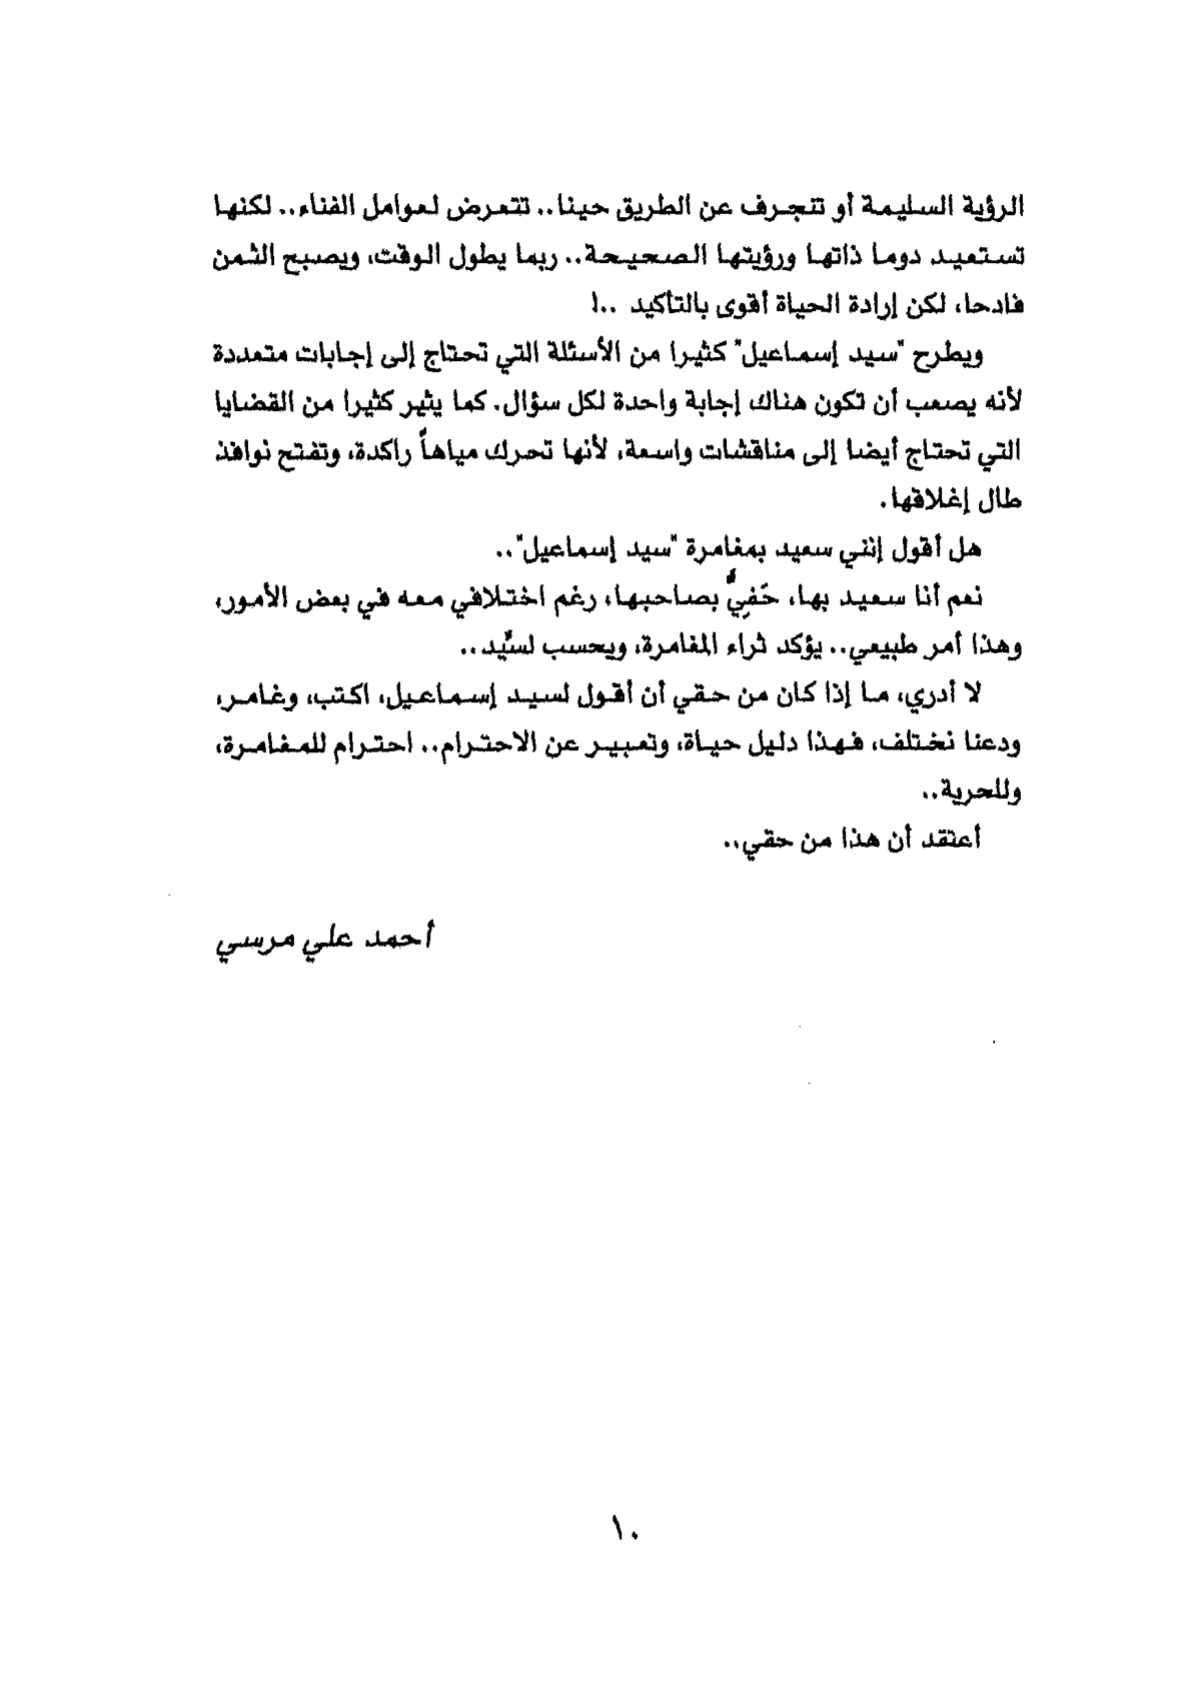 الرؤية السليمة أو تنجرف عن الطريق حينا.. تتعرض لعوامل الفناء.. لكنها
تستعيد دوما ذاتها ورؤيتها الصحيحة.. ربما يطول الوقت، ويصبح الثمن
فادحا، لكن إرادة الحياة أقوى بالتأكيد ..!
ويطرح "سيد إسماعيل" كثيرا من الأسئلة التي تحتاج إلى إجابات متعددة
لأنه يصعب أن تكون هناك إجابة واحدة لكل سؤال. كما يثير كثيرا من القضايا
التي تحتاج أيضا إلى مناقشات واسعة، لأنها تحرك مياهاً راكدة، وتفتح نوافذ
طال إغلاقها.
هل أقول إنني سعيد بمغامرة "سيد إسماعيل"..
نعم أنا سعيد بها، حَفِيٌّ بصاحبها، رغم اختلافي معه في بعض الأمور،
وهذا أمر طبيعي.. يؤكد ثراء المغامرة، ويحسب لسيِّد..
لا أدري، ما إذا كان من حقي أن أقول لسيد إسماعيل، اكتب، وغامر،
ودعنا نختلف، فهذا دليل حياة، وتعبير عن الاحترام.. احترام للمغامرة،
وللحرية..
أعتقد أن هذا من حقي..
أحمد علي مرسي
١٠